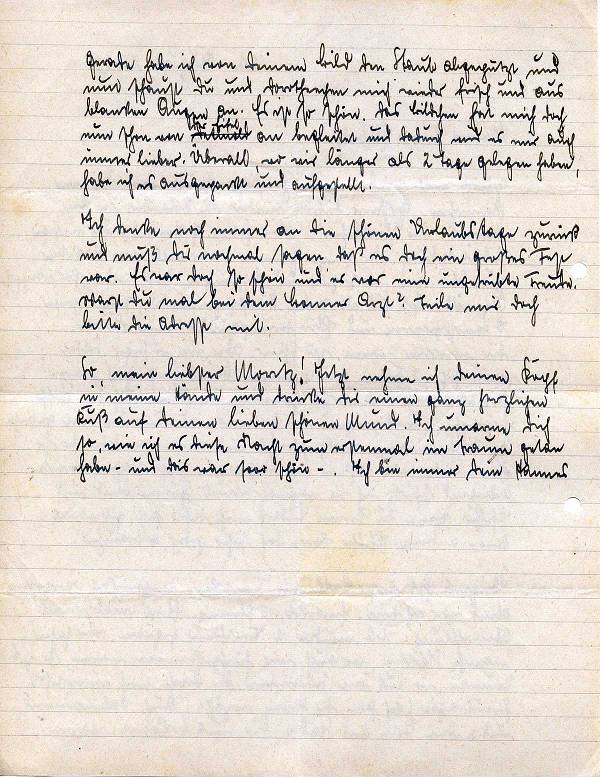 Gerade habe ich von Deinem Bild den Staub abgeputzt und
nun schaust Du und mich wieder frisch und aus
blanken Augen an. Es ist so schön. Das Bildchen hat mich doch
nun schon von der Eifel an begleitet und dadurch wird es mir auch
immer lieber. Überall wo wir länger als 2 Tage gelegen haben,
habe ich es ausgepackt und aufgestellt.
Ich denke noch immer an die schönen Urlaubstage zurück
und muß Dir nochmal sagen daß es doch ein großes Fest
war. Es war doch so schön und es war eine ungetrübte Freude.
Warst Du mal bei dem Bonner Arzt? Teile mir doch
bitte die Adresse mit.
So, mein liebster Moritz! Jetzt nehme ich deinen Kopf
in meine Hände und drücke dir einen ganz herzlichen
Kuß auf Deinen lieben schönen Mund. Ich umarme Dich
so, wie ich es diese Nacht zum erstenmal im Traum getan
habe - und das war sehr schön -. Ich bin immer Dein Hannes